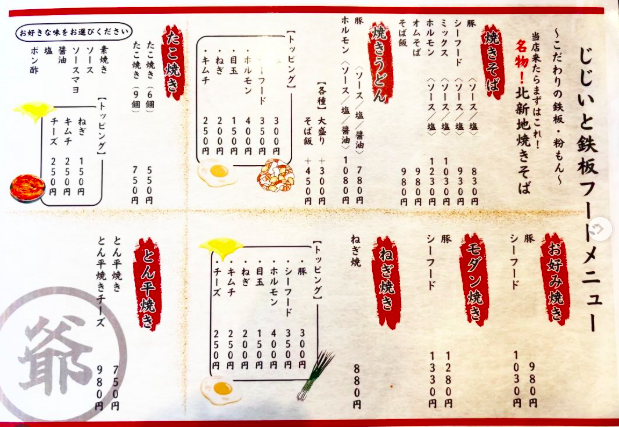 じじいと鉄板フードメニュー
〜こだわりの鉄板・粉もん〜
当店来たらまずはこれ!
名物!北新地焼きそば
焼きそば
豚 〈ソース/塩〉 830円
シーフード 〈ソース/塩〉 930円
ミックス 〈ソース/塩〉 1030円
ホルモン 〈ソース/塩〉 1200円
オムそば 980円
そば飯 980円
焼きうどん
豚 〈ソース/塩/醤油〉 780円
ホルモン 〈ソース/塩/醤油〉 1080円
【各種】大盛り +300円
そば飯 +450円
【トッピング】
300円
フード 350円
・ホルモン 400円
・目玉 150円
・ねぎ 200円
・キムチ 250円
たこ焼き
たこ焼き(6個) 550円
たこ焼き(9個) 750円
お好きな味をお選びください
素焼き
ソース
ソースマヨ
塩
醤油
ポン酢
【トッピング】
ねぎ 150円
キムチ 250円
チーズ 250円
お好み焼き
豚 980円
シーフード 1030円
モダン焼き
豚 1280円
シーフード 1330円
ねぎ焼き
ねぎ焼 880円
【トッピング】
・豚 300円
・シーフード 350円
・ホルモン 400円
・目玉 150円
・ねぎ 200円
・キムチ 250円
・チーズ 250円
とん平焼き
とん平焼き 750円
とん平焼きチーズ 980円
爺